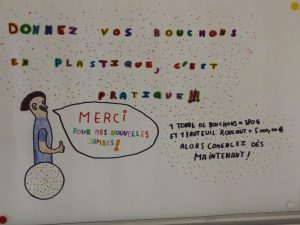 DONNEZ VOS BOUCHONS
EN PLASTIQUE, C'EST
PRATIQUE!!!
MERCI
POUR MES NOUVELLES
JAMBES!
1 TONNE DE BOUCHONS = 180€
ET 1 FAUTEUIL ROULANT = 5000,00€
ALORS COMENCEZ DÈS
MAINTENANT!